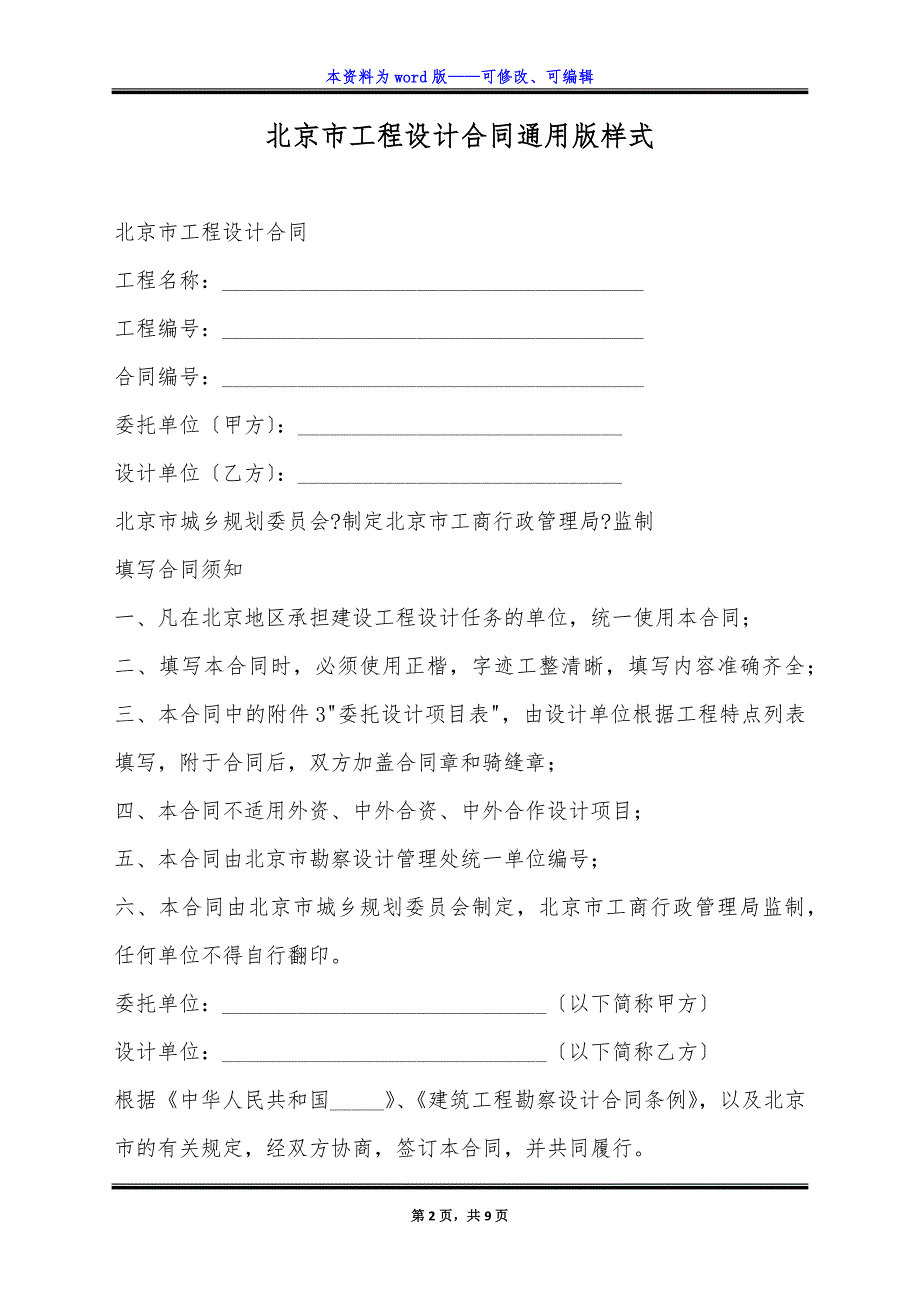 本资料为 word 版——可修改、可编辑
北京市工程设计合同通用版样式
北京市工程设计合同
工程名称：_______________________________________
工程编号：_______________________________________
合同编号：_______________________________________
委托单位〔甲方〕：______________________________
设计单位〔乙方〕：______________________________
北京市城乡规划委员会?制定北京市工商行政管理局?监制
填写合同须知
一、凡在北京地区承担建设工程设计任务的单位，统一使用本合同；
二、填写本合同时，必须使用正楷，字迹工整清晰，填写内容准确齐全；
三、本合同中的附件 3"委托设计项目表"，由设计单位根据工程特点列表
填写，附于合同后，双方加盖合同章和骑缝章；
四、本合同不适用外资、中外合资、中外合作设计项目；
五、本合同由北京市勘察设计管理处统一单位编号；
六、本合同由北京市城乡规划委员会制定，北京市工商行政管理局监制，
任何单位不得自行翻印。
委托单位：______________________________〔以下简称甲方〕
设计单位：______________________________〔以下简称乙方〕
根据《中华人民共和国_____》、《建筑工程勘察设计合同条例》，以及北京
市的有关规定，经双方协商，签订本合同，并共同履行。
第 2 页，共 9 页